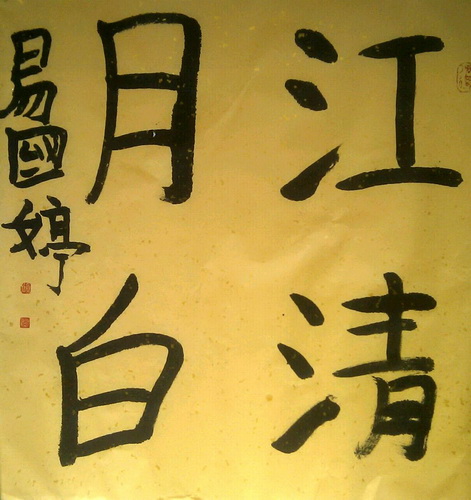 江清
月白
易國婷